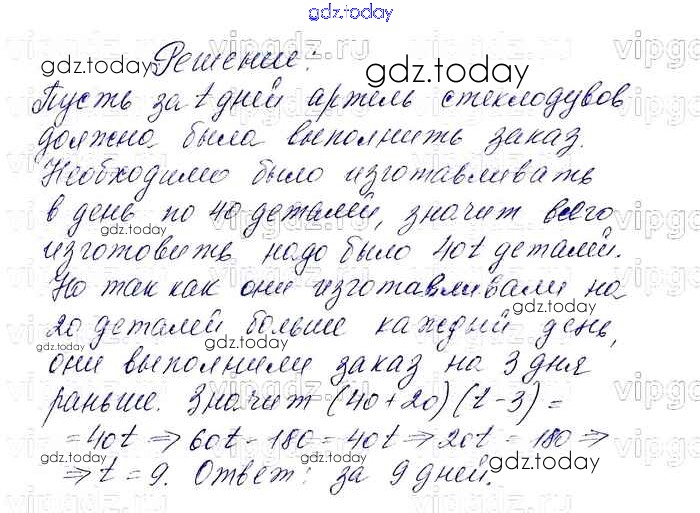 gdz.today
Решение:
gdz.today
gdz.today
Пусть за t дней артель стеклодувов
должна была выполнить заказ.
Необходимо было изготавливать
в день по 40 деталей, значит всего
изготовить надо было 40t деталей.
Но так как они изготавливали на
20 деталей больше каждый день,
они выполнили заказ на 3 дня
раньше. Значит (40+20)(t-3)=
=40t ⇒ 60t-180=40t ⇒ 20t=180 ⇒
⇒ t=9. Ответ: за 9 дней.
gdz.today
gdz.today
gdz.today
gdz.today
gdz.today
gdz.today
gdz.today
gdz.today
gdz.today